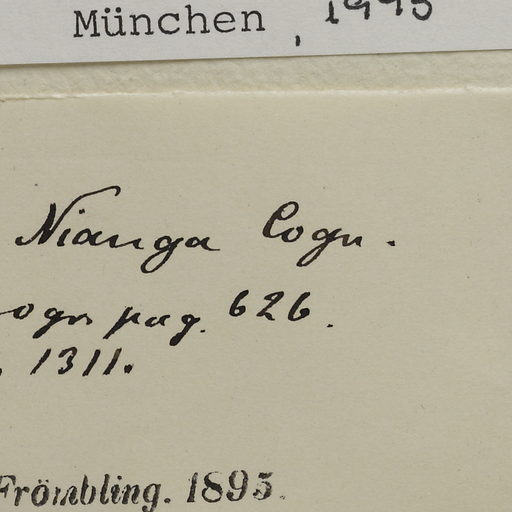 München, 1995
Nianga Cogn.
Cogn pag. 626.
. 1311.
Frömbling. 1895.